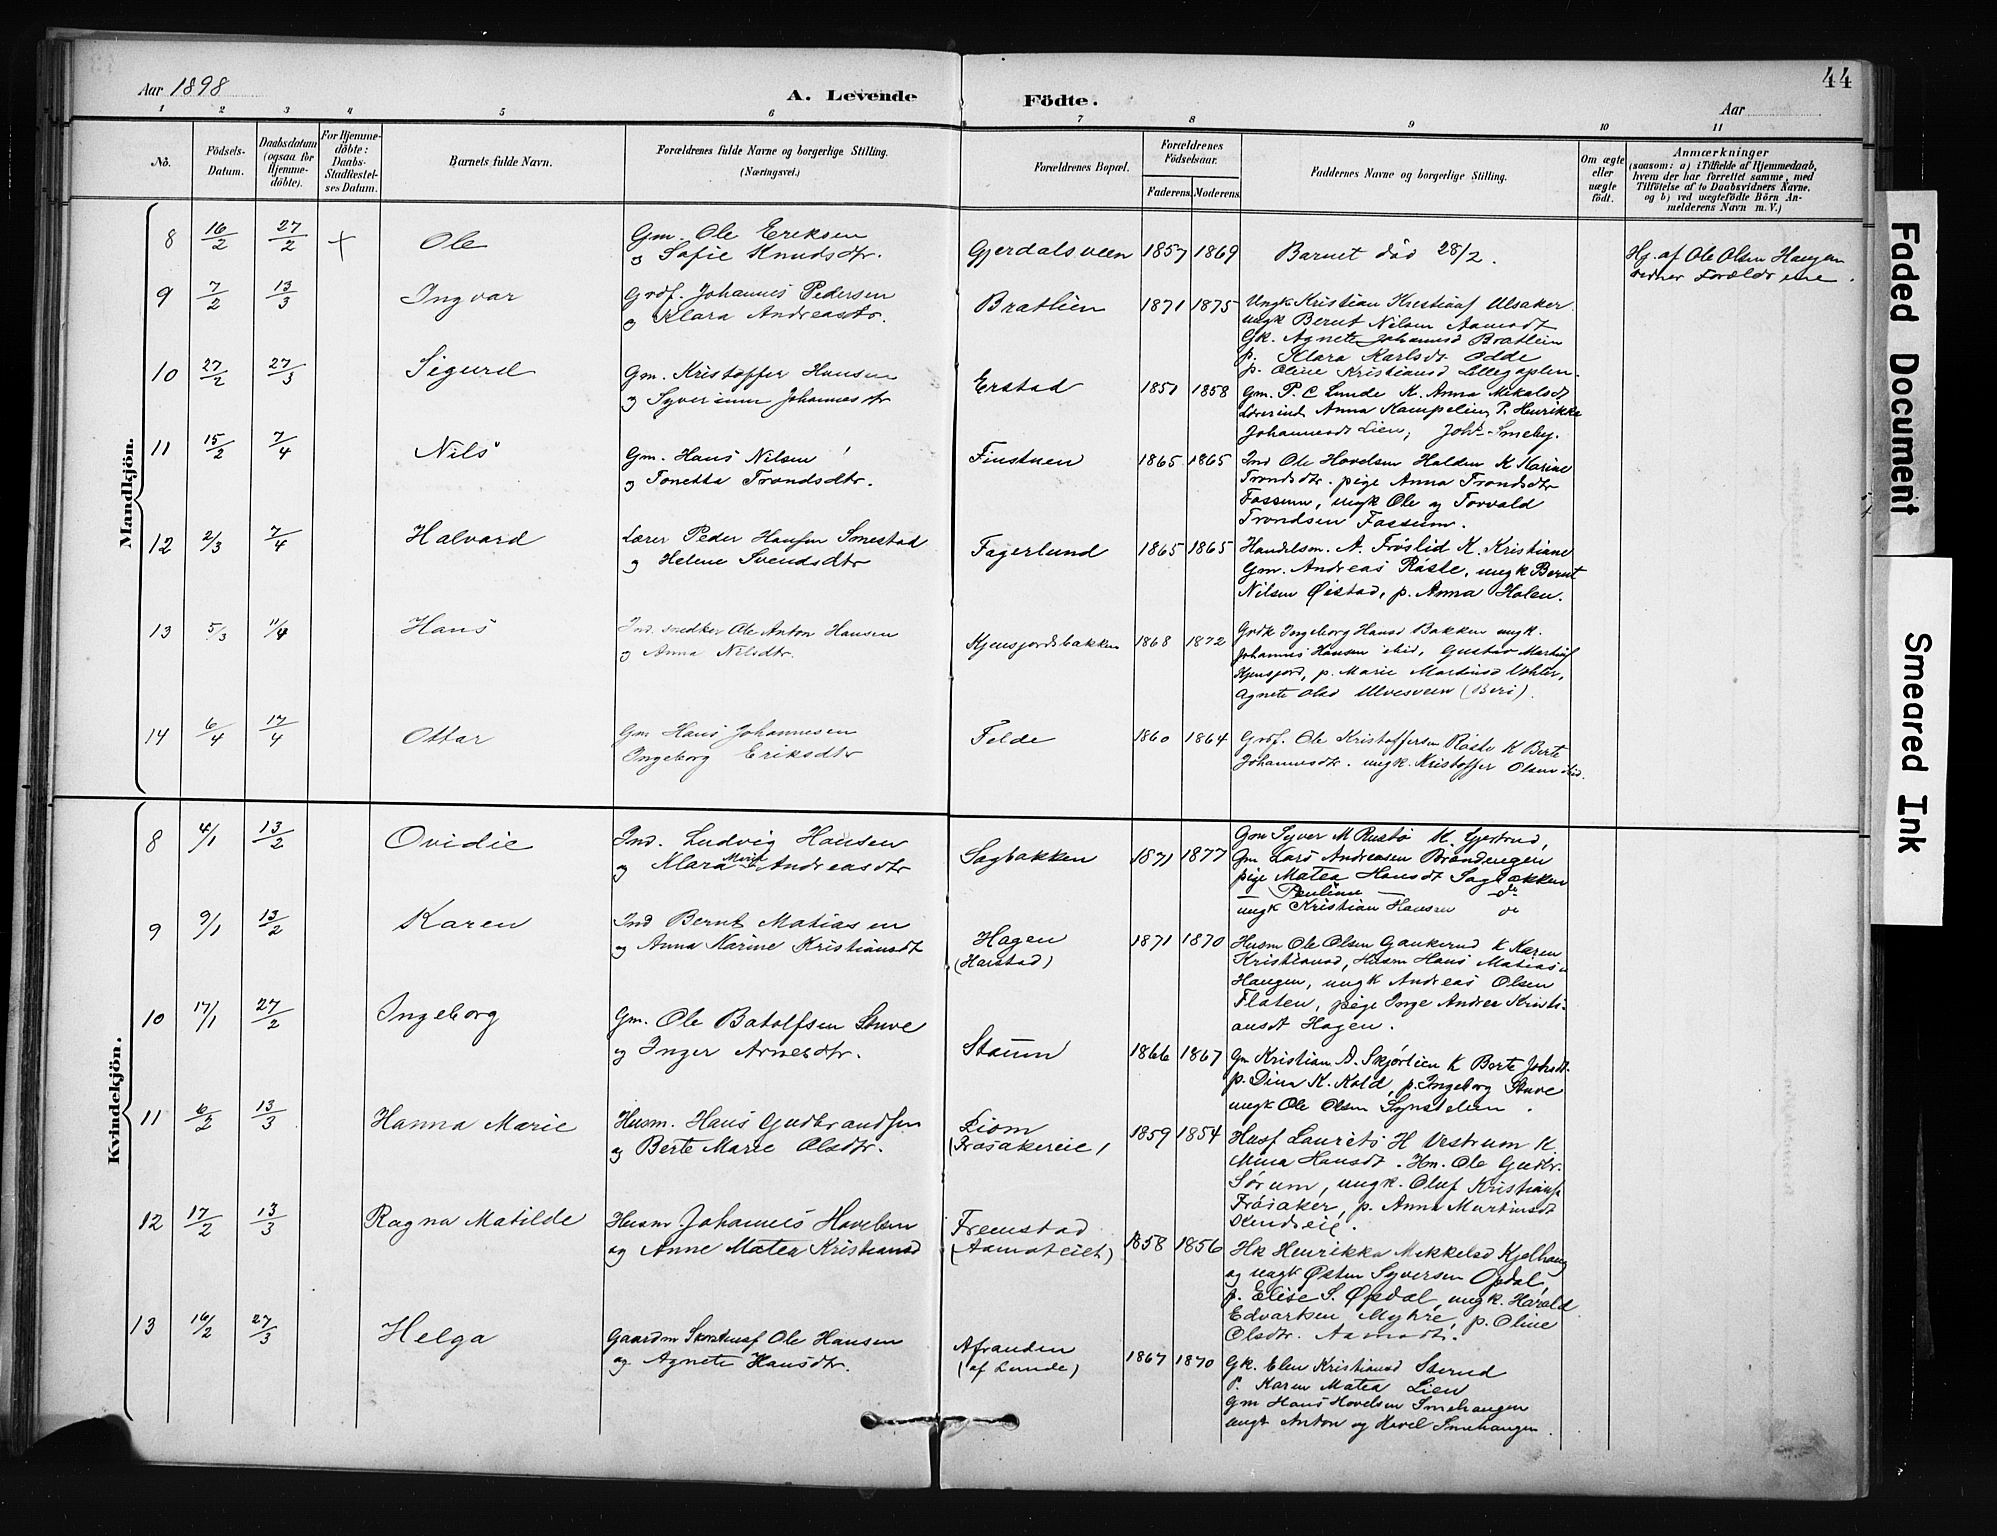 44
Aar 1898
A. Levende Födte.
Aar
1 2 3 4 5 6 7 8 9 10 11
Nô.
Födsels-Datum.
Daabsdatum (ogsaa for Hjemme-döbte).
For Hjemme-döbte: Daabs-Stadfæstel-ses Datum.
Barnets fulde Navn.
Forældrenes fulde Navne og borgerlige Stilling.
(Næringsvei.)
Forældrenes Bopæl.
Forældrenes Födselsaar.
Faderens. Moderens.
Faddernes Navne og borgerlige Stilling.
Om ægte eller uægte födt.
Anmærkninger
(saasom: a) i Tilfælde af Hjemmedaab,
hvem der har forrettet samme, med
Tilföielse af to Daabsvidners Navne.
og b) ved uægtefödte Börn An-
melderens Navn m. V.)
Mandkjön.
8 16/2 27/2 + Ole Gm. Ole Eriksen Gjerdalsveen 1857 1869 Barnet död 28/2. Hj. af Ole Olsen Haugen
og Sofie Knudsdtr. vidner Forældrene.
9 7/2 13/3 Ingvar Grdf. Johannes Pedersen Bratlien 1871 1875 Ungk Kristian Kristiansf Ulsaker
og Klara Andreasdtr. ungk Bernt Nilsen Aamodt
Gk. Agnete Johannesd Bratlein
p. Klara Karlsdt Odde
p. Oline Kristiansd Lillegaplen.
10 27/2 27/3 Sigurd Gm. Kristoffer Hansen Erstad 1851 1858 Gm. P. C Lunde K. Anna Mikalsdt
og Syverinne Johannesdtr Lærerind Anna Kampelien, P. Henrikke
Johannesdt Lien, Joh. Smeby.
11 15/2 7/4 Nils Gm. Hans Nilsen Finstuen 1865 1865 Ind Ole Hovelsen Holden K Karine
og Tonetta Trondsdtr. Trondsdtr. pige Anna Trondsdtr
Fossum, ungk Ole og Torvald
Trondsen Fossum.
12 2/3 7/4 Halvard Lærer Peder Hansen Smestad Fagerlund 1865 1865 Handelsm. A. Fröslid K. Kristiane
og Helene Svendsdtr Gm. Andreas Röste, ungk Bernt
Nilsen Øistad, p. Anna Holen.
13 5/3 11/4 Hans Ind. snedker Ole Anton Hansen Kjensjordsbakken 1868 1872 Grdk Ingeborg Hansd Bakken ungk.
og Anna Nilsdtr. Johannes Hansen ibid, Gustav Martinsf
Kjensjord, p. Marie Martinsd
Agnete Olsd Ulvesveen (Beri).
14 6/4 17/4 Ottar Gm Hans Johannesen Felde 1860 1864 Grdf. Ole Kristoffersen Röste K Berte
Ingeborg Eriksdtr Johannesdtr. ungk. Kristoffer Olsen ibid.
Kvindekjön.
8 4/1 13/2 Ovidie Ind. Ludvig Hansen Sagbakken 1871 1877 Gm Syver M Rustö K. Sjertrud,
og Klara Marie Andreasdtr Gm Lars Andreasen Brændengen
pige Matea Hansdt Sagbakken
— Pauline — do
ungk Kristian Hansen do
9 9/1 13/2 Karen Ind Bernt Matiasen Hagen 1871 1870 Husm Ole Olsen Gaukerud K Karen
og Anna Karine Kristiansdt (Harstad) Kristiansd, Husm Hans Matias
Haugen, ungk Andreas Olsen
Flaten, pige Inge Andrea Kristi-
ansdt Hagen.
10 17/1 27/2 Ingeborg Gm. Ole Batolfsen Stuve Staum 1866 1867 Gm Kristian A. Skjörlien K Berte Johsdt
og Inger Arnesdtr. p. Dina K. Kold, p. Ingeborg Stuve
ungk Ole Olsen Synstelien.
11 6/2 13/3 Hanna Marie Husm. Hans Gudbrandsen Liom 1859 1854 Husf Laurits H Vestrum K.
og Berte Marie Olsdtr. (Frösakereie) Mina Hansdt. Hm. Ole Gudbr.
Sörum, ungk. Oluf Kristiansf
Fröisaker, p. Anna Martinsdt
12 17/2 13/3 Ragna Matilde Husm. Johannes Hovelsen Fremstad 1858 1856 Hk Henrikka Mikkelsd Kjelhaug
og Anne Matea Kristiansd (Aamoteiet) og ungk Östen Syversen Opdal,
p. Elise S. Øpdal, ungk. Harald
Edvartsen Myhre, p. Oline
Olsdtr. Aamodt.
13 16/2 27/3 Helga Gaardm Ole Hansen Afranden 1867 1870 Gk. Elen Kristiansd Sterud
og Agnete Hansdtr. (af Lunde) P. Karen Matea Lien
Gm Hans Hovelsen Smehaugen
ungk Anton og Hovel Smehaugen.
Faded Document
Smeared Ink